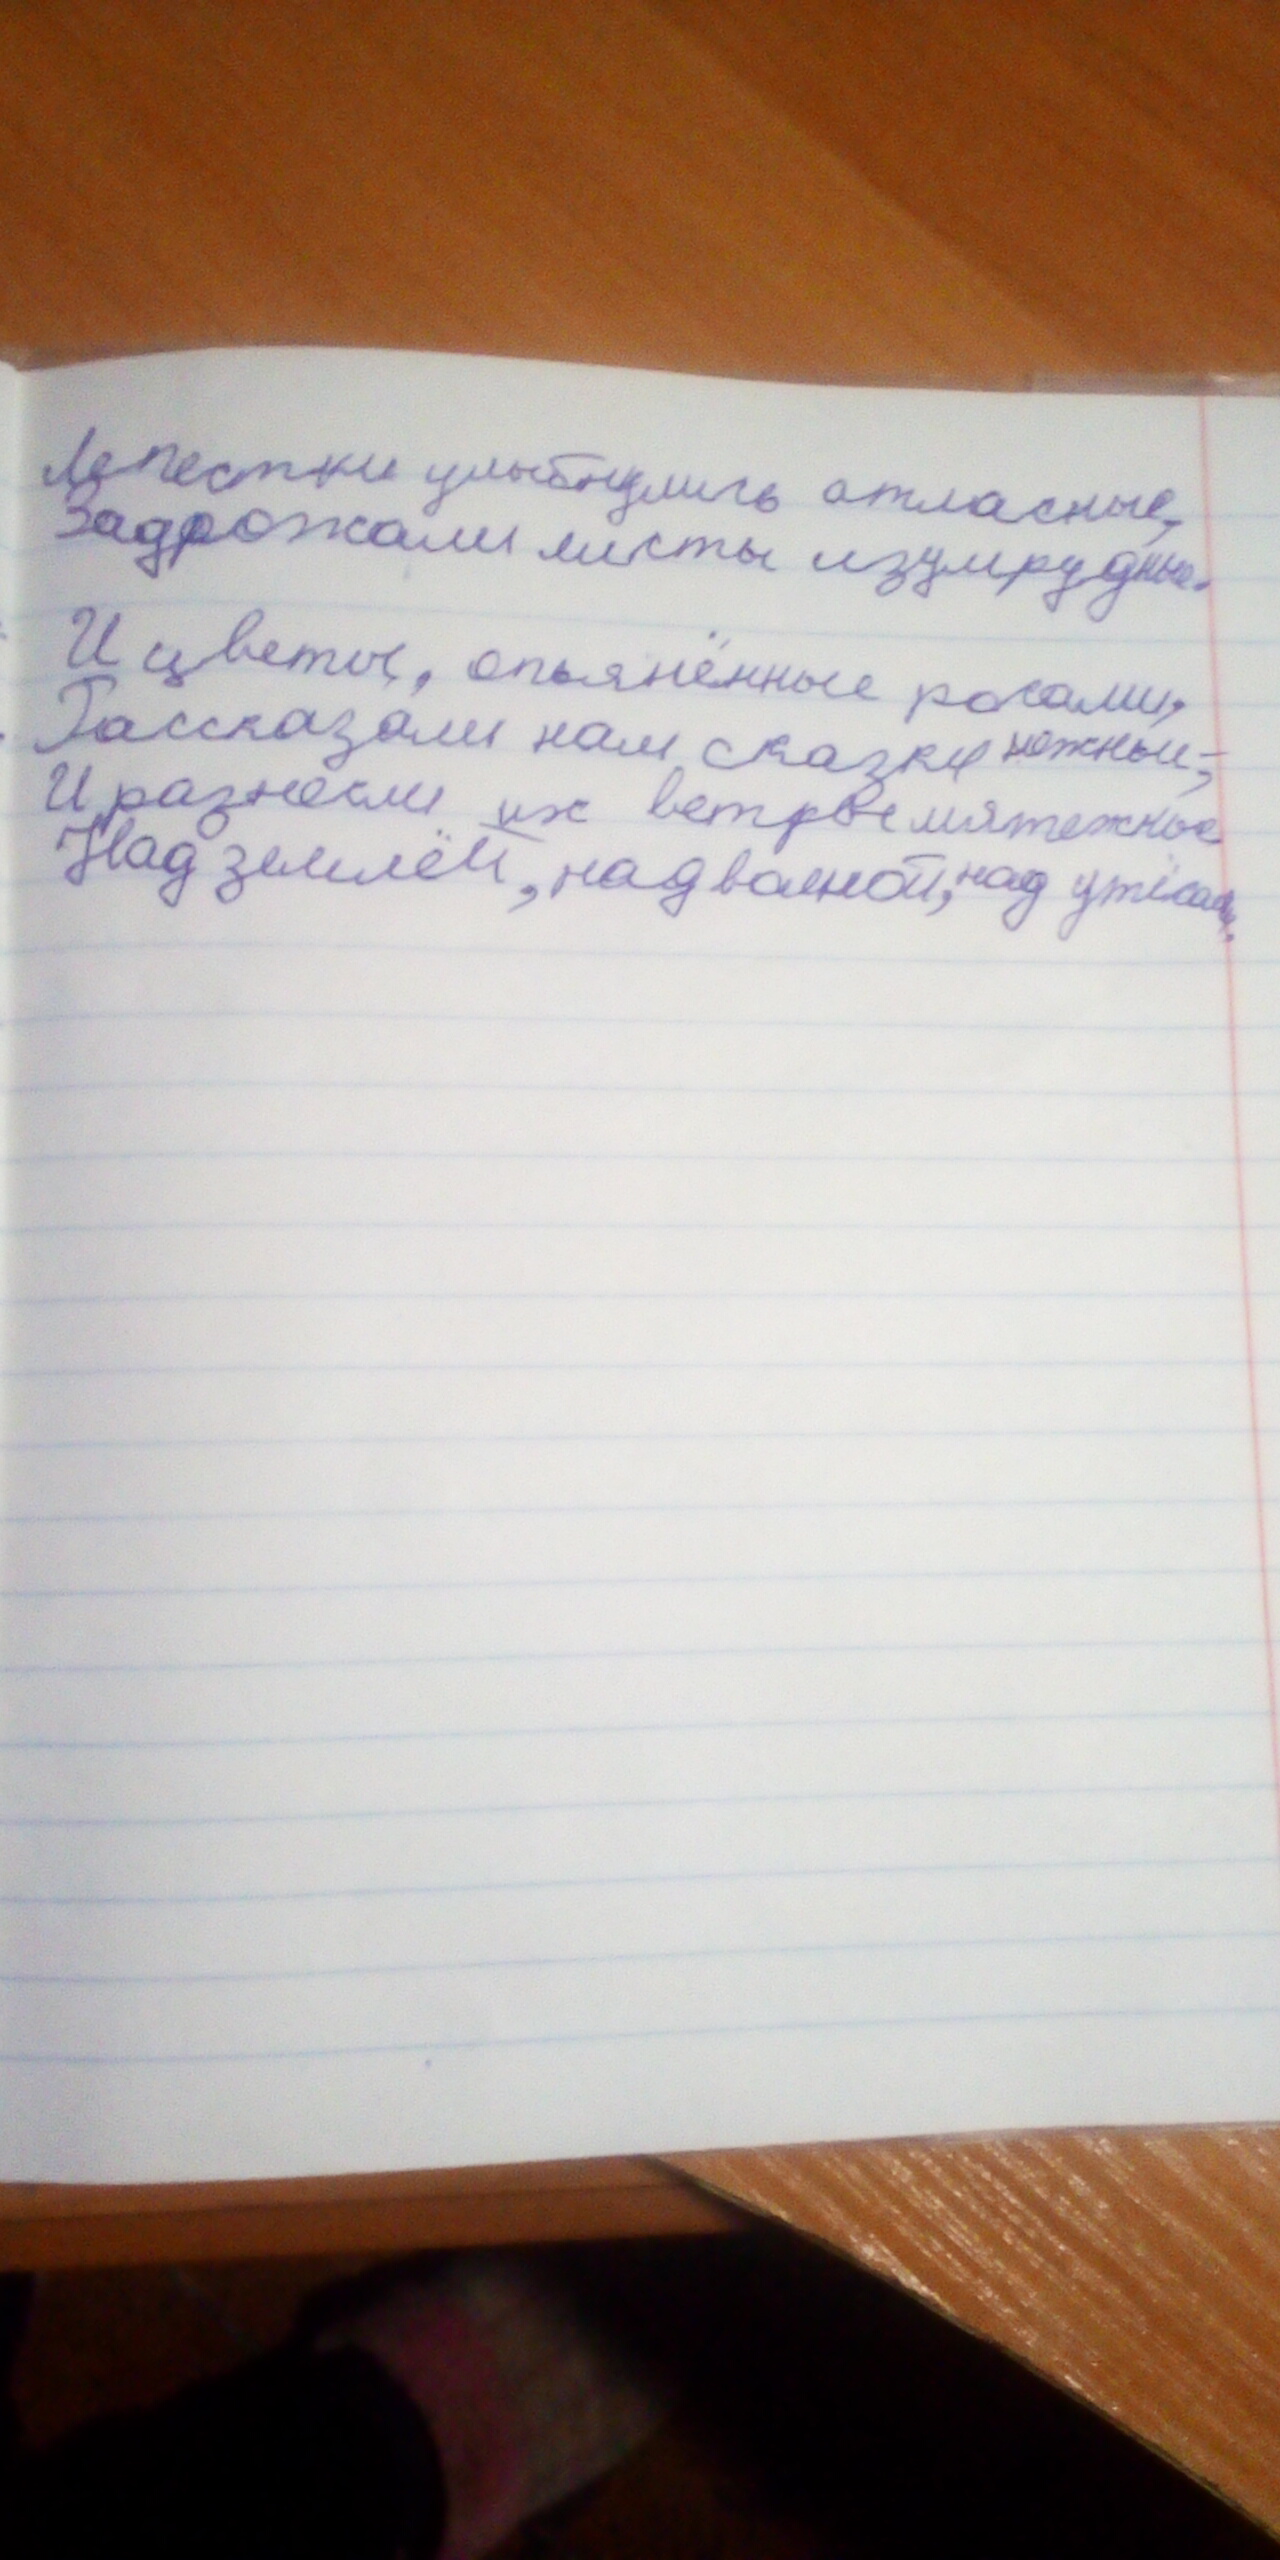 Лепестки улыбнулись атласные,
Задрожали листы изумрудные.
И цветы, опьянённые росами,
Рассказали нам сказки нежные,
И разнесли их ветры мятежные
Над землёй, над волной, над утёсами.